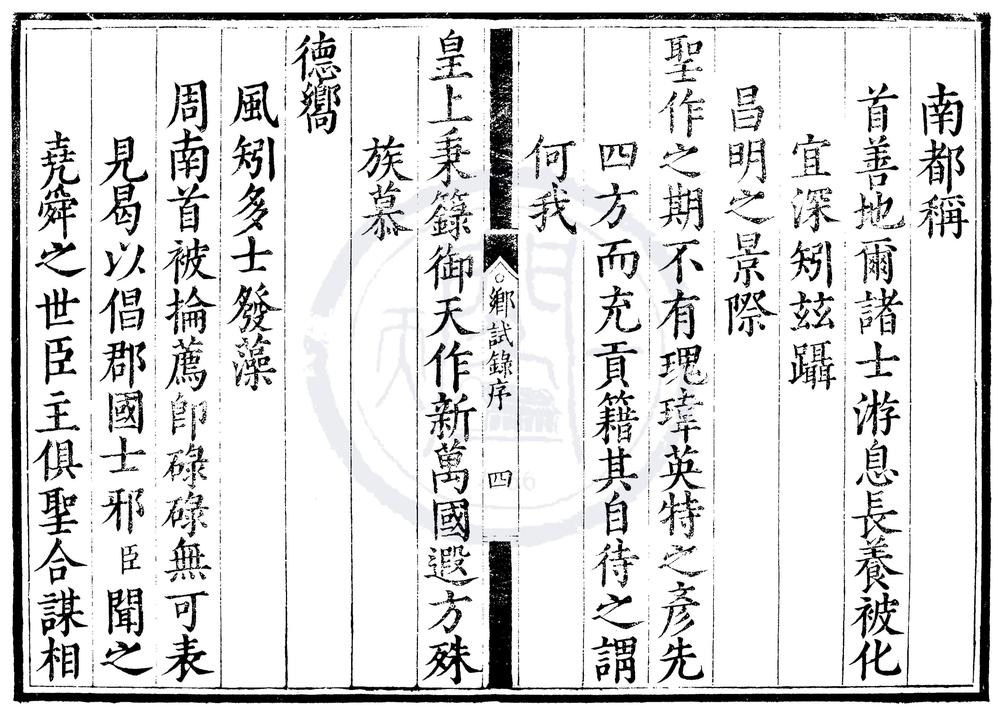 南都稱
首善地爾諸士游息長養被化
宜深矧玆躡
昌明之景際
聖作之期不有瑰瑋英特之彥先
四方而充貢籍其自待之謂
何我
鄉試錄序
四
皇上秉籙御天作新萬國遐方殊
族慕
德嚮
風矧多士發藻
周南首被掄薦卽碌碌無可表
見曷以倡郡國士邪臣聞之
堯舜之世臣主俱聖合謀相